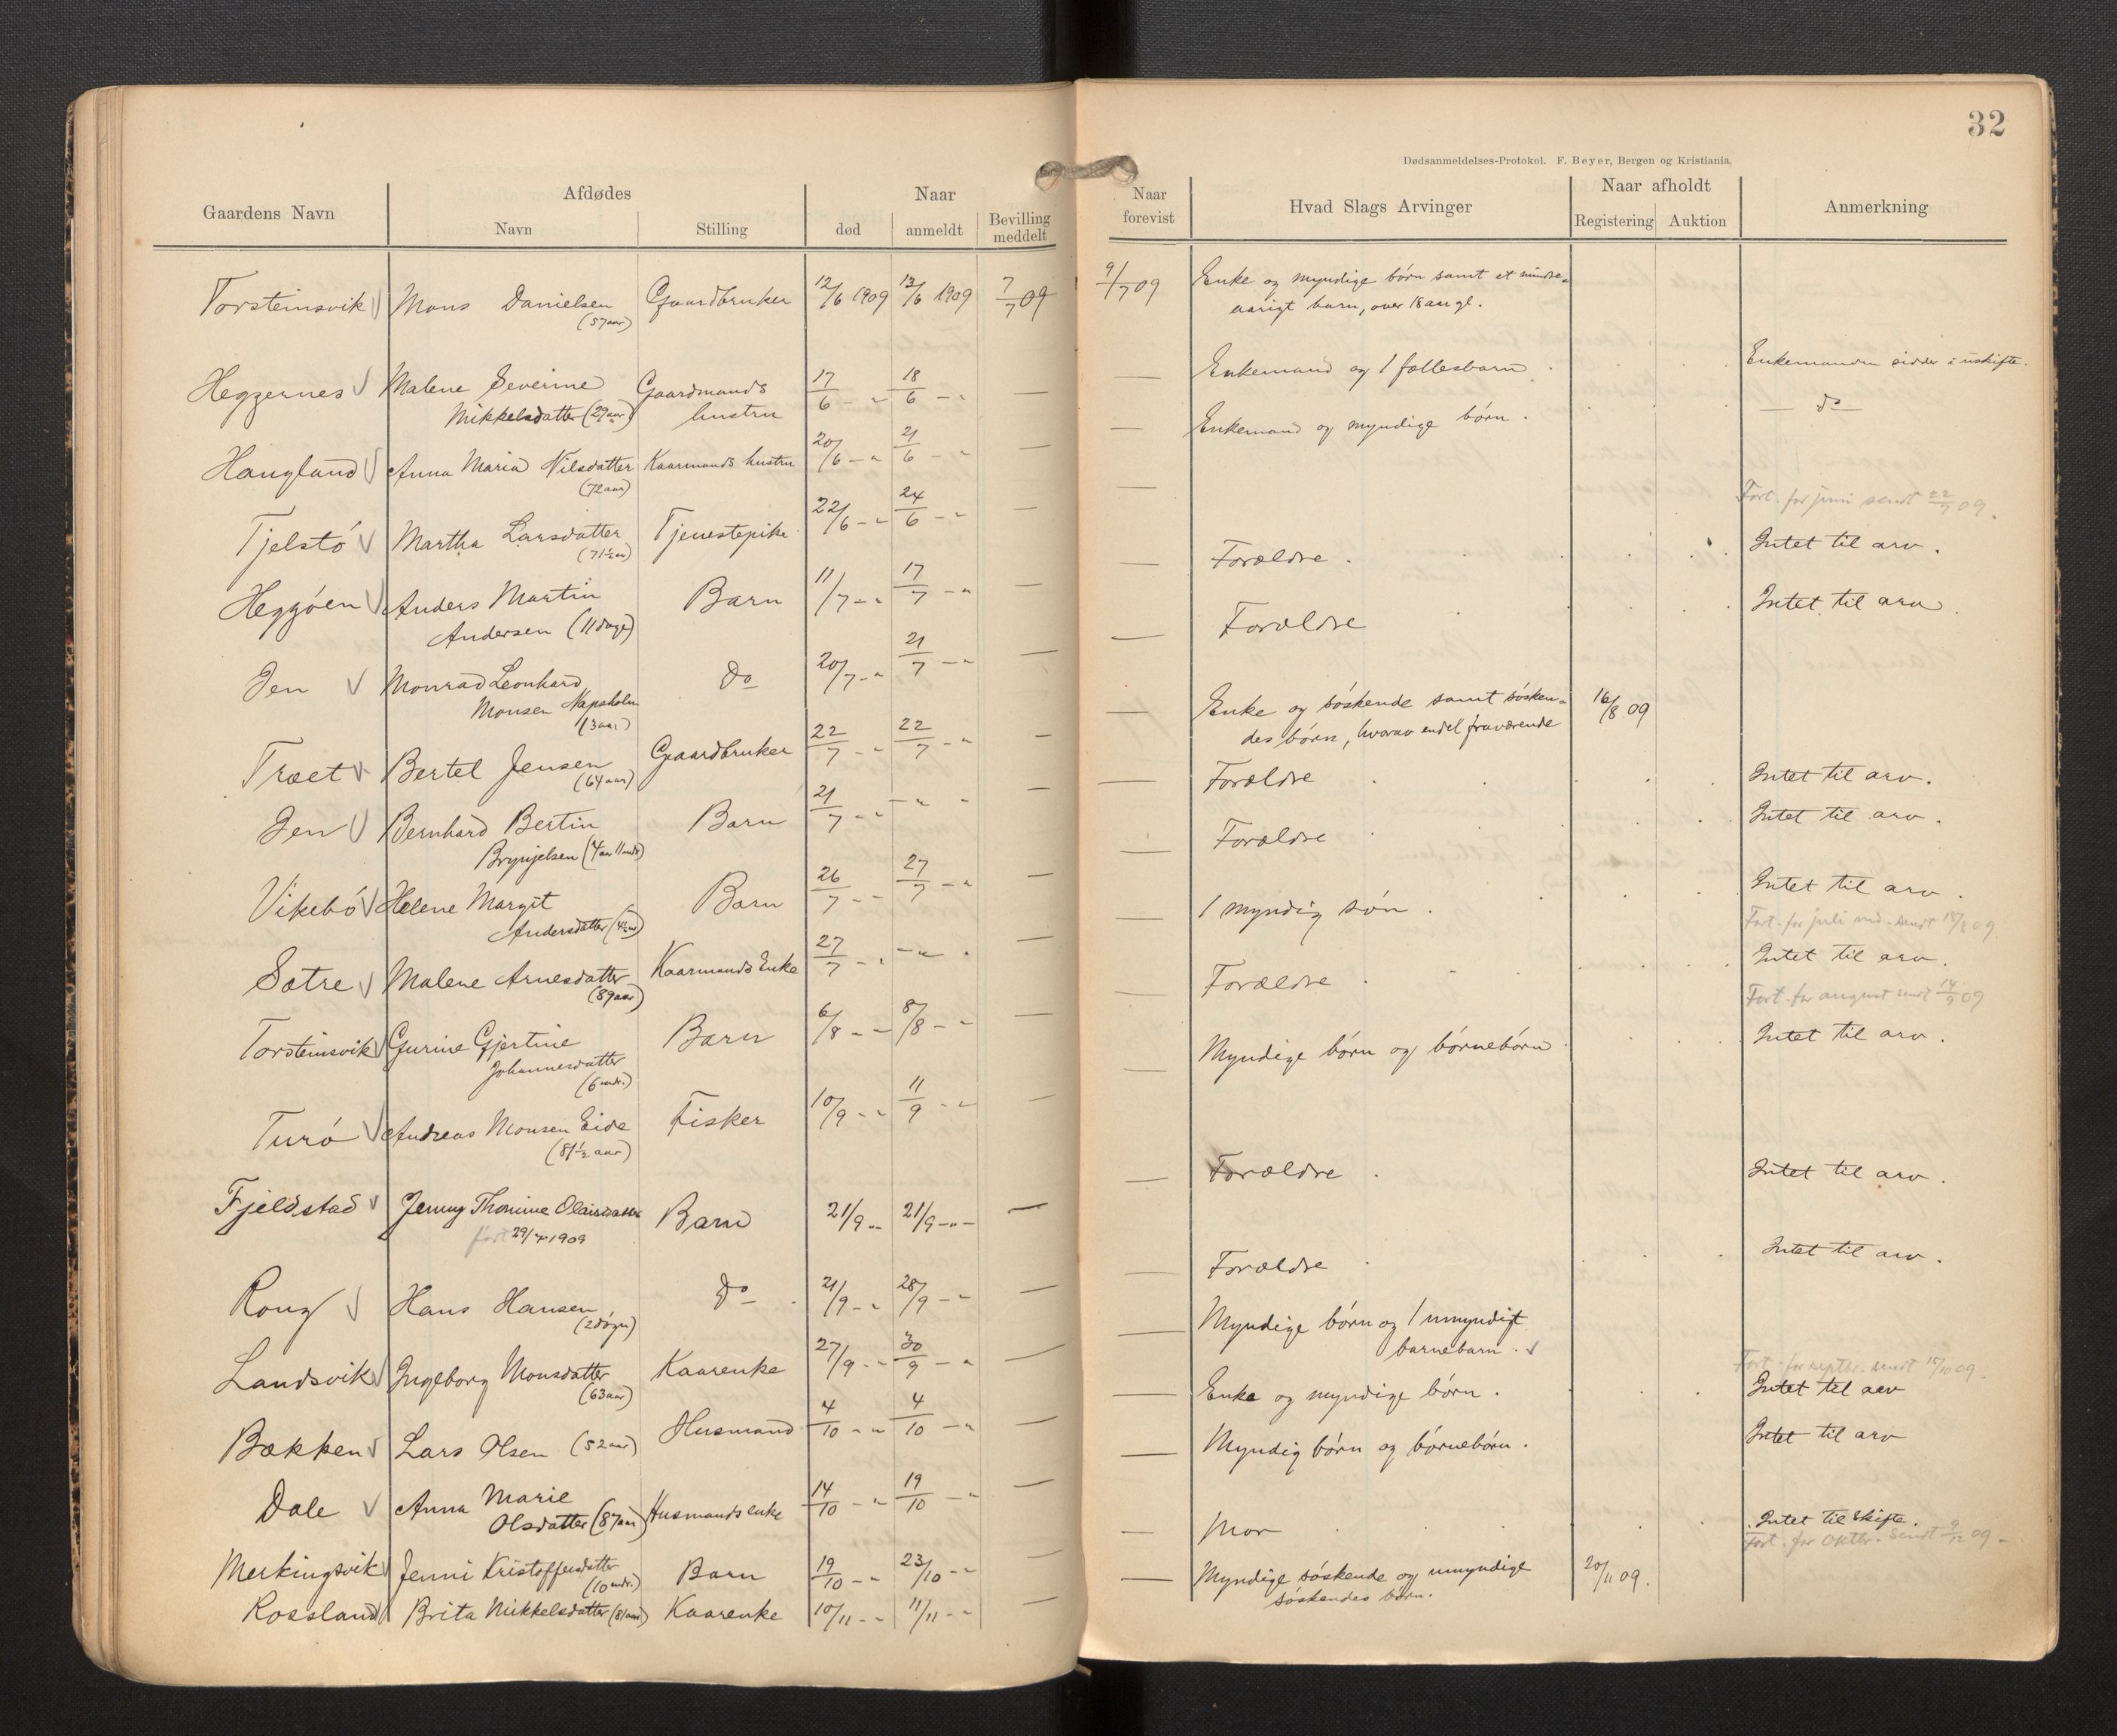 32
Dødsanmeldelses-Protokol. F. Beyer, Bergen og Kristiania.
Gaardens Navn
Afdødes
Navn
Stilling
Naar
død
anmeldt
Bevilling
meddelt
Naar
forevist
Hvad Slags Arvinger
Naar afholdt
Registering
Auktion
Anmerkning
Torsteinsvik √ Mons Danielsen Gaardbruker 12/6 1909 13/6 1909 7/7 09
(57 aar)
Heggernes √ Malene Severine Gaardmands 17/6 - " 18/6 - " —
Mikkelsdatter (29 aar) hustru
Haugland √ Anna Maria Nilsdatter Kaarmands hustru 20/6 - " 21/6 - " —
(72 aar)
Tjelstó √ Martha Larsdatter Tjenestepike 22/6 - " 24/6 - " —
(71½ aar)
Heggóen √ Anders Martin Barn 11/7 - " 17/7 - " —
Andersen (11 dage)
Jen √ Monrad Leonhard Do 20/7 - " 21/7 - " —
Monsen Napsholm
(3 aar)
Træet √ Bertel Jensen Gaardbruker 22/7 - " 22/7 - " —
(64 aar)
Jen √ Bernhard Bertin Barn 21/7 - " - " - —
Brynjelsen (4 aar 11 mdr)
Vikebó √ Helene Margit Barn 26/7 - " 27/7 - " —
Andersdatter (4½ aar)
Sætre √ Malene Arnesdatter Kaarmands Enke 27/7 - " - " - —
(89 aar)
Torsteinsvik √ Gurine Gjertine Barn 6/8 - " 8/8 - " —
Johannesdatter
(6 mdr.)
Turó √ Andreas Monsen Eide Fisker 10/9 - " 11/9 - " —
(81½ aar)
Fjeldstad √ Jenny Thomine Olaisdatter Barn 21/9 - " 21/9 - " - —
født 29/4 1909
Rong √ Hans Hansen Do 21/9 - " 28/9 - " —
(2 døgn)
Landsvik √ Ingeborg Monsdatter Kaarenke 27/9 - " 30/9 - " —
(63 aar)
Bækken √ Lars Olsen (52 aar) Husmand 4/10 - " 4/10 - " —
Dale √ Anna Marie Husmands enke 14/10 - " 19/10 - " —
Olsdatter (87 aar)
Merkingsvik √ Jenni Kristoffersdatter Barn 19/10 - " 23/10 - " —
(10 mdr.)
Rossland √ Brita Mikkelsdatter (81 aar) Kaarenke 10/11 - " 11/11 - " —
9/7 09 Enke og myndige børn samt et mindre-
aarigt barn, over 18 aar gl.
— Enkemand og 1 fællesbarn . Enkemanden sidder i uskifte.
— Enkemand og myndige børn . — do —
— Fort. for juni sendt 22/7 09.
— Forældre . Intet til arv .
— Forældre Intet til arv .
— Enke og søskende samt søsken- 16/8 09
des børn, hvorav endel fraværende
— Forældre . Intet til arv .
— Forældre Intet til arv .
— 1 myndig søn . Intet til arv .
Fort. for juli md. sendt 18/8 09.
— Forældre . Intet til arv .
Fort. for august sendt 14/9 09
— Myndige børn og børnebørn . Intet til arv .
— Forældre . Intet til arv .
— Forældre Intet til arv .
— Myndige børn og 1 umyndigt
barnebarn . √
Fort. for septbr. sendt 15/10 09.
— Enke og myndige børn . Intet til arv
— Myndig børn og børnebørn . Intet til arv
— Mor Intet til skifte .
Fort. for Oktbr. sendt 9/12 09 -
— Myndige søskende og umyndige 20/11 09.
søskendes børn.